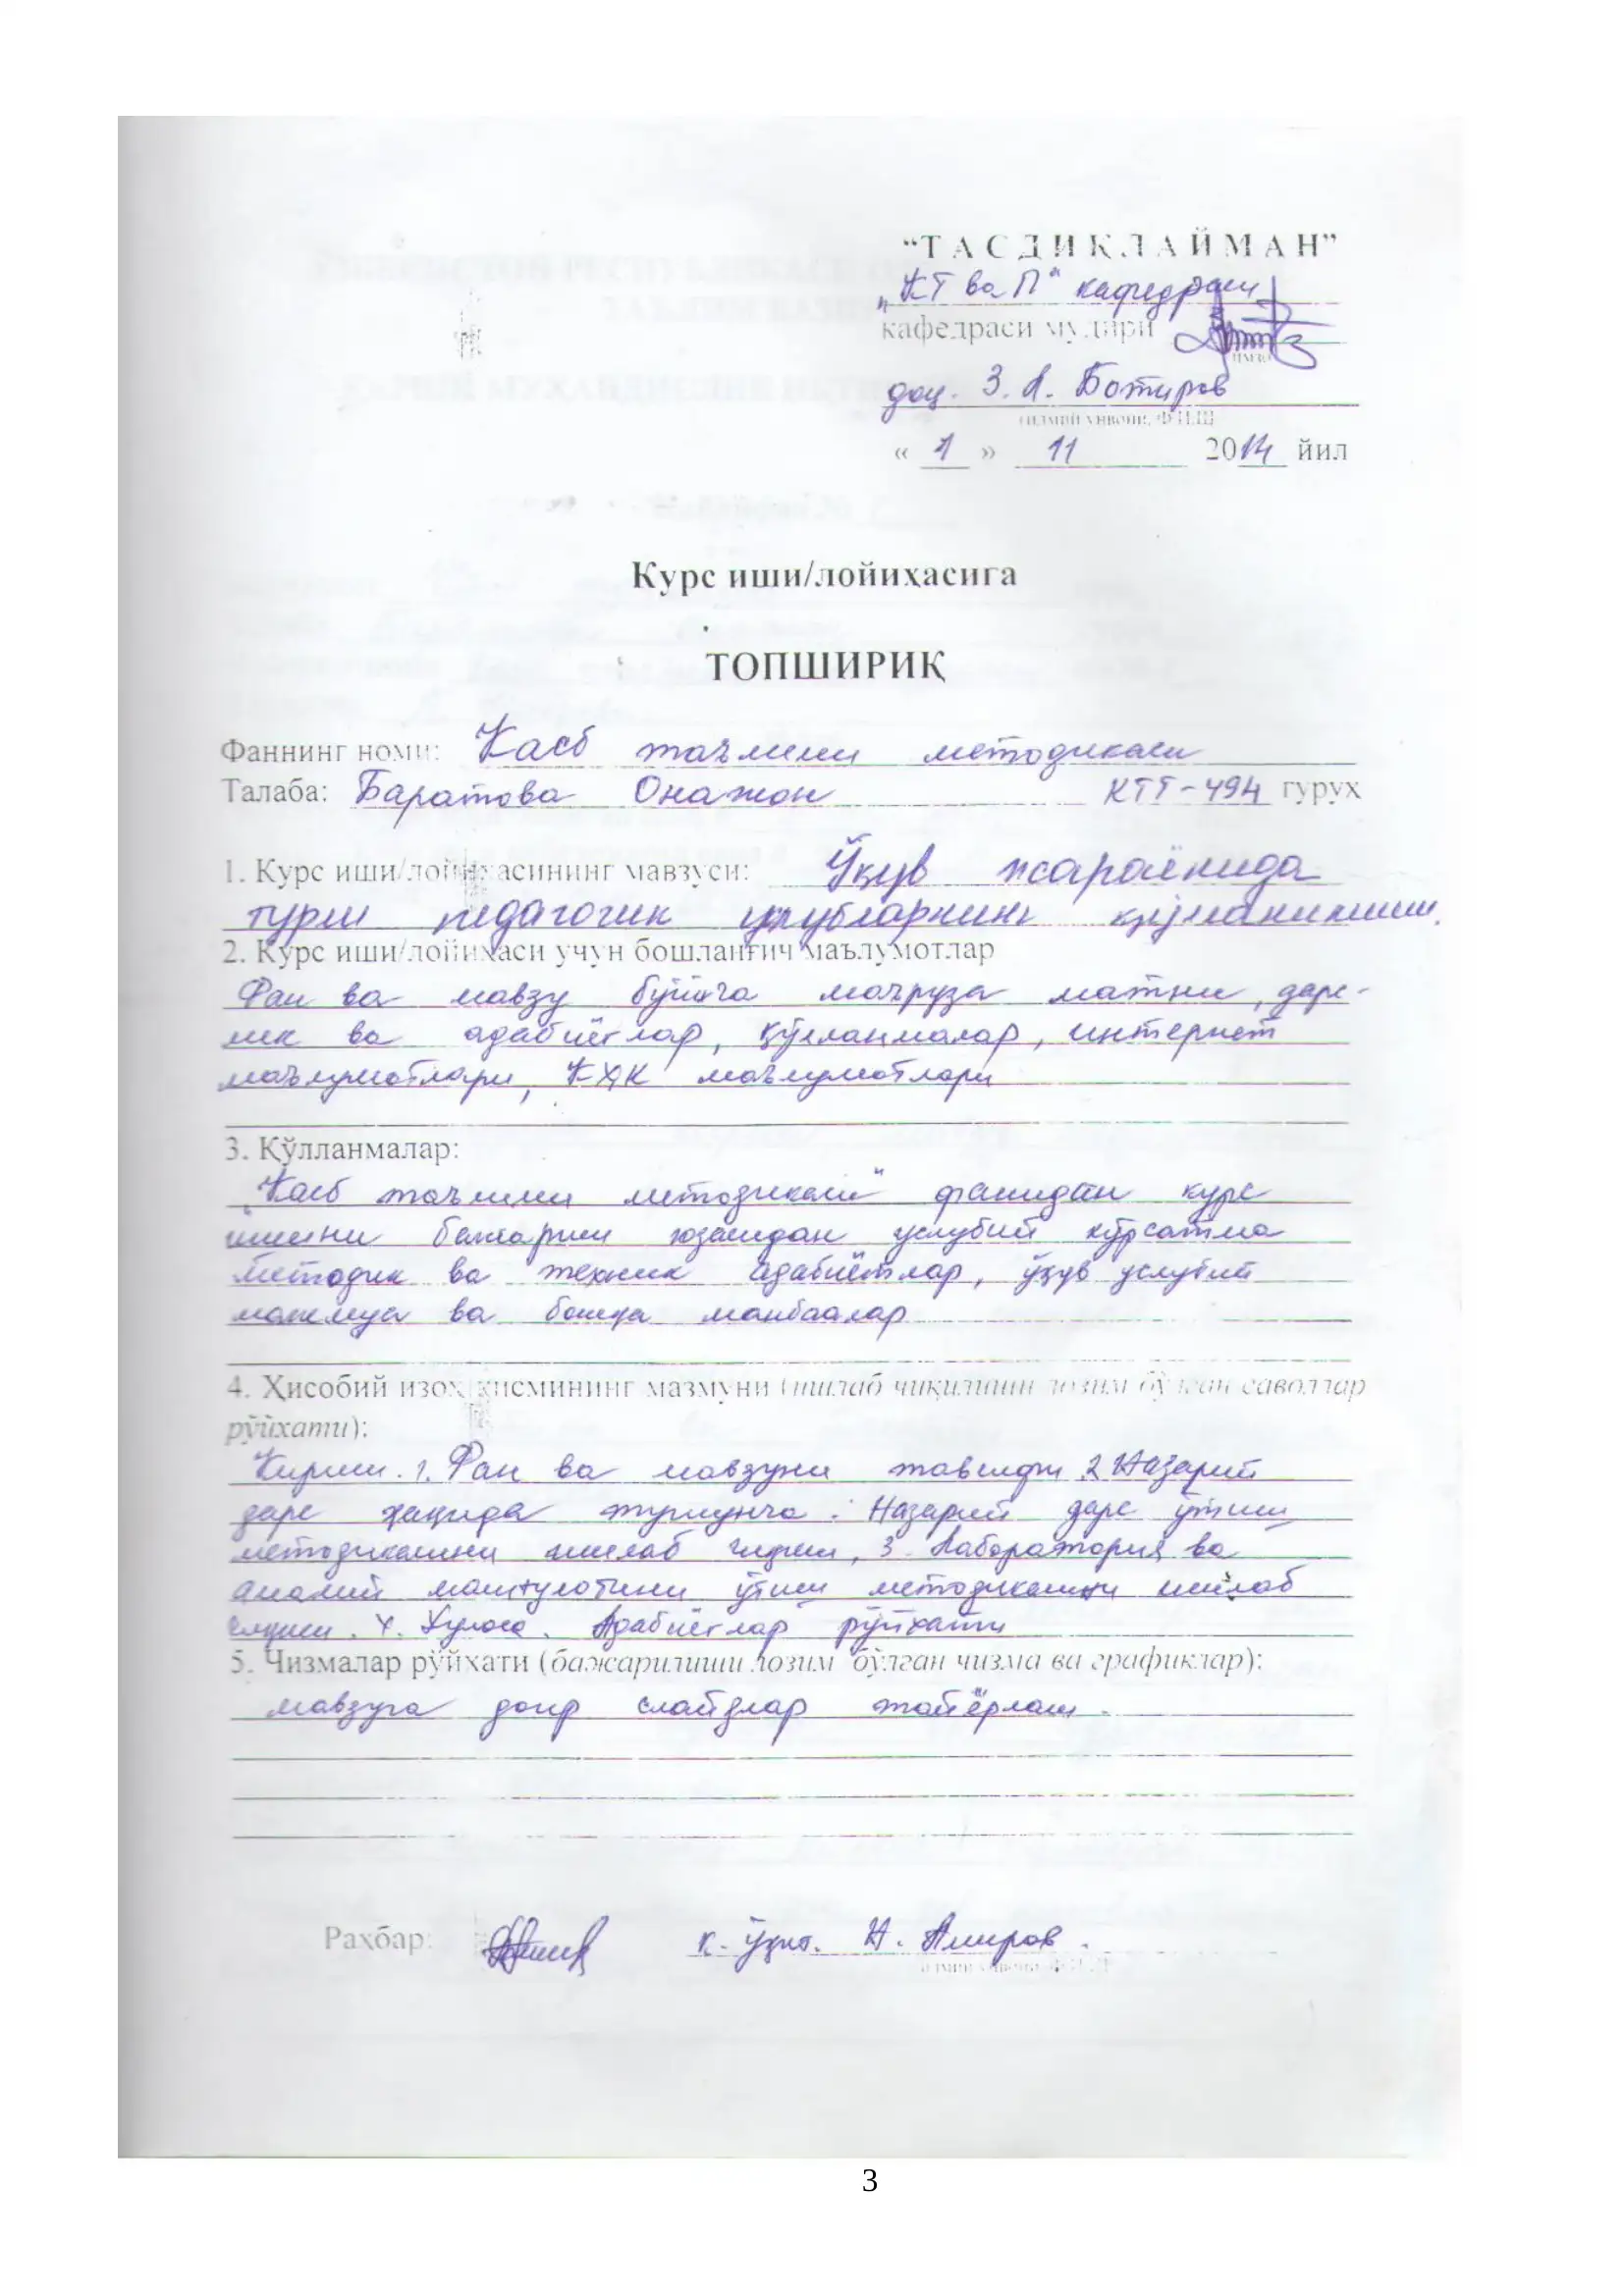 “Т А С Д И Қ Л А Й М А Н”
„КТ ва П“ кафедраси
кафедраси мудири
имзо
доц. З. А. Ботиров
(илмий унвони, Ф.И.Ш
« 1 » 11 2014 йил
Курс иши/лойиҳасига
ТОПШИРИҚ
Фаннинг номи: Касб таълими методикаси
Талаба: Баратова Онажон КТТ-494 гуруҳ
1. Курс иши/лойиҳасининг мавзуси: Ўқув жараёнида
турли педагогик услубларнинг қўлланилиши.
2. Курс иши/лойиҳаси учун бошланғич маълумотлар
Фан ва мавзу бўйича маъруза матни, дарс-
лик ва адабиётлар, қўлланмалар, интернет
маълумотлари, КҲК маълумотлари
3. Қўлланмалар:
„Касб таълими методикаси“ фанидан курс
ишини бажариш юзасидан услубий кўрсатма
методик ва техник адабиётлар, ўқув услубий
мажмуа ва бошқа манбаалар
4. Ҳисобий изоҳ қисмининг мазмуни (ишлаб чиқилиши лозим бўлган саволлар
рўйхати):
Кириш. 1. Фан ва мавзуни тавсифи 2 Назарий
дарс ҳақида тушунча. Назарий дарс ўтиш
методикасини ишлаб чиқиш, 3. Лаборатория ва
амалий машғулотини ўтиш методикасини ишлаб
чиқиш. 4. Хулоса. Адабиётлар рўйхати
5. Чизмалар рўйхати (бажарилиши лозим бўлган чизма ва графиклар):
мавзуга доир слайдлар тайёрлаш.
Раҳбар: к. ўқит. Н. Амиров.
3